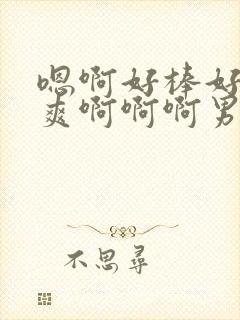 嗯啊好棒好
爽啊啊啊男
不思寻